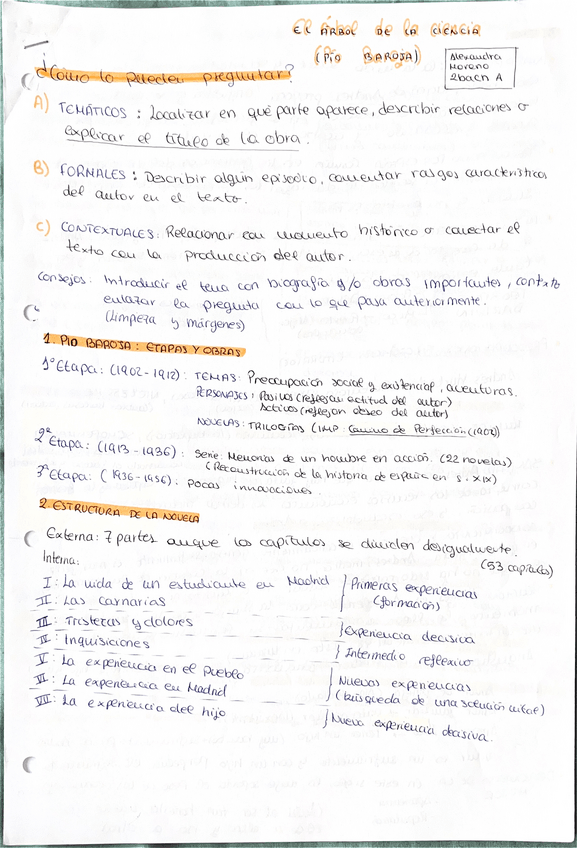 EL ÁRBOL DE LA CIENCIA
(PÍO BAROJA)
Alexandra
Moreno
2bach A
¿Cómo lo pueden preguntar?
A) TEMÁTICOS: Localizar en qué parte aparece, describir relaciones o
explicar el título de la obra.
B) FORMALES: Describir algún episodio, comentar rasgos característicos
del autor en el texto.
C) CONTEXTUALES: Relacionar con momento histórico o conectar el
texto con la producción del autor.
Consejos: Introducir el tema con biografía y/o obras importantes, contexto
enlazar la pregunta con lo que pasa anteriormente.
(Limpieza y márgenes)
1. PÍO BAROJA: ETAPAS Y OBRAS
1ª Etapa: (1902-1912): TEMAS: Preocupación social y existencial, aventuras.
PERSONAJES: Pasivos (reflejan actitud del autor)
Activos (reflejan deseo del autor)
NOVELAS: TRILOGÍAS (IMP: Camino de Perfección (1902)
2ª Etapa: (1913-1936): Serie: Memorias de un hombre en acción. (22 novelas)
(Reconstrucción de la historia de españa en s. XIX)
3ª Etapa: (1936-1956): Pocas innovaciones.
2. ESTRUCTURA DE LA NOVELA
Externa: 7 partes aunque los capítulos se dividen desigualmente.
(53 capítulos)
Interna:
I: La vida de un estudiante en Madrid
II: Las carnarias
Primeras experiencias
(formación)
III: Tristezas y dolores
Experiencia decisiva
IV: Inquisiciones
Intermedio reflexivo
V: La experiencia en el pueblo
VI: La experiencia en Madrid
Nuevas experiencias
(búsqueda de una solución vital)
VII: La experiencia del hijo
Nueva experiencia decisiva.